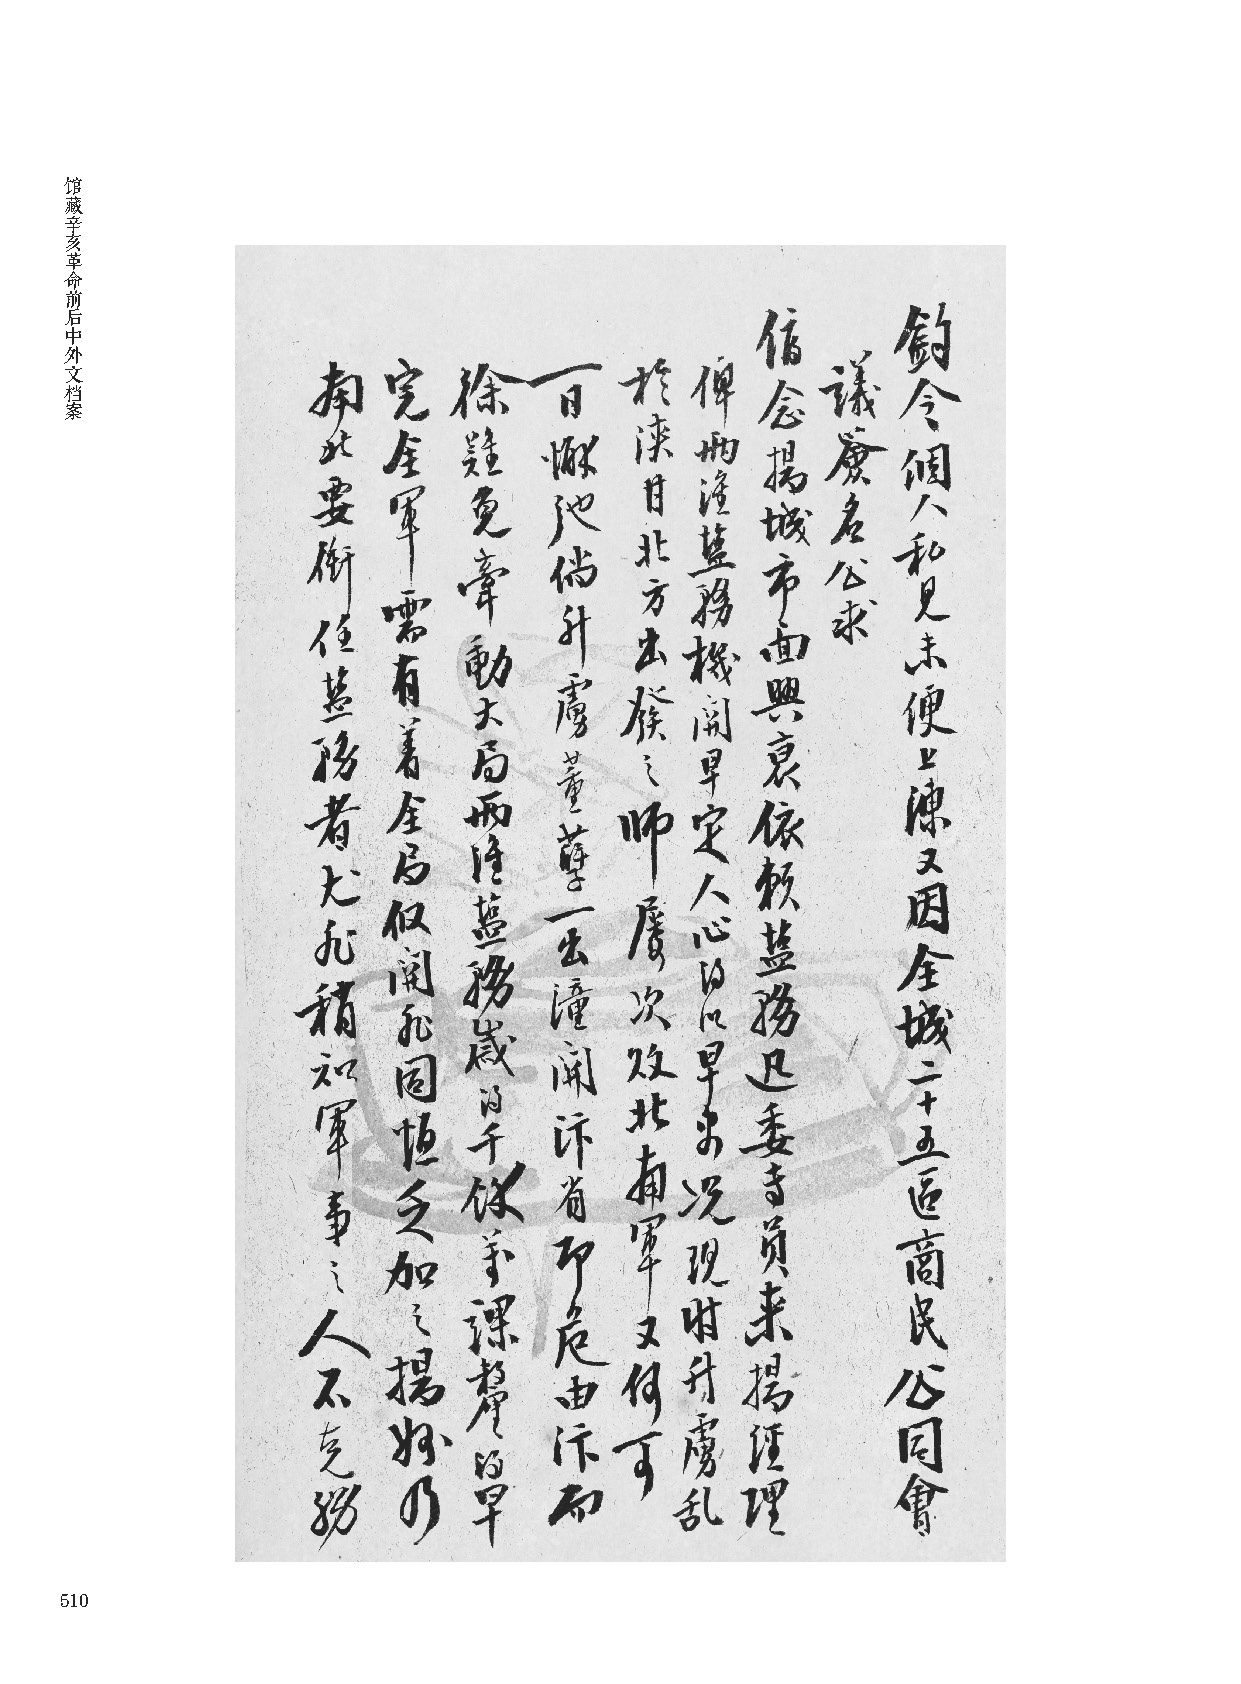 馆藏辛亥革命前后中外文档案
鈞今個人私見未便上陳又因全城二十五區商民公同會
議簽名公求
俯念揚城市面興衰依賴鹽務迅委専員来揚經理
俾兩淮鹽務機関早定人心得以早安况現时升虜乱
於陝甘北方出發之師屢次敗北南軍又何可
一日懈弛倘升虜董孽一出潼関汴省即危由汴而
徐難免牽動大局兩淮鹽務歲得千餘萬課釐得早
完全軍需有着全局攸関非同恒乏加之揚州乃
南北要衝任鹽務者尤非稍知軍事之人不克勝
510